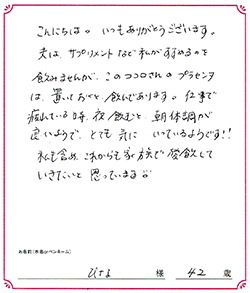 こんにちは。いつもありがとうございます。
夫は、サプリメントなど私がすすめるのを
飲みませんが、このココロさんのプラセンタ
は、置いておくと、飲んであります。仕事で
疲れている時、夜飲むと、朝体調が
良いようで、とても気に いっているようです!!
私も含め、これからも家族で愛飲して
いきたいと思っています
お名前(本名orペンネーム)
ひさよ 様 42 歳